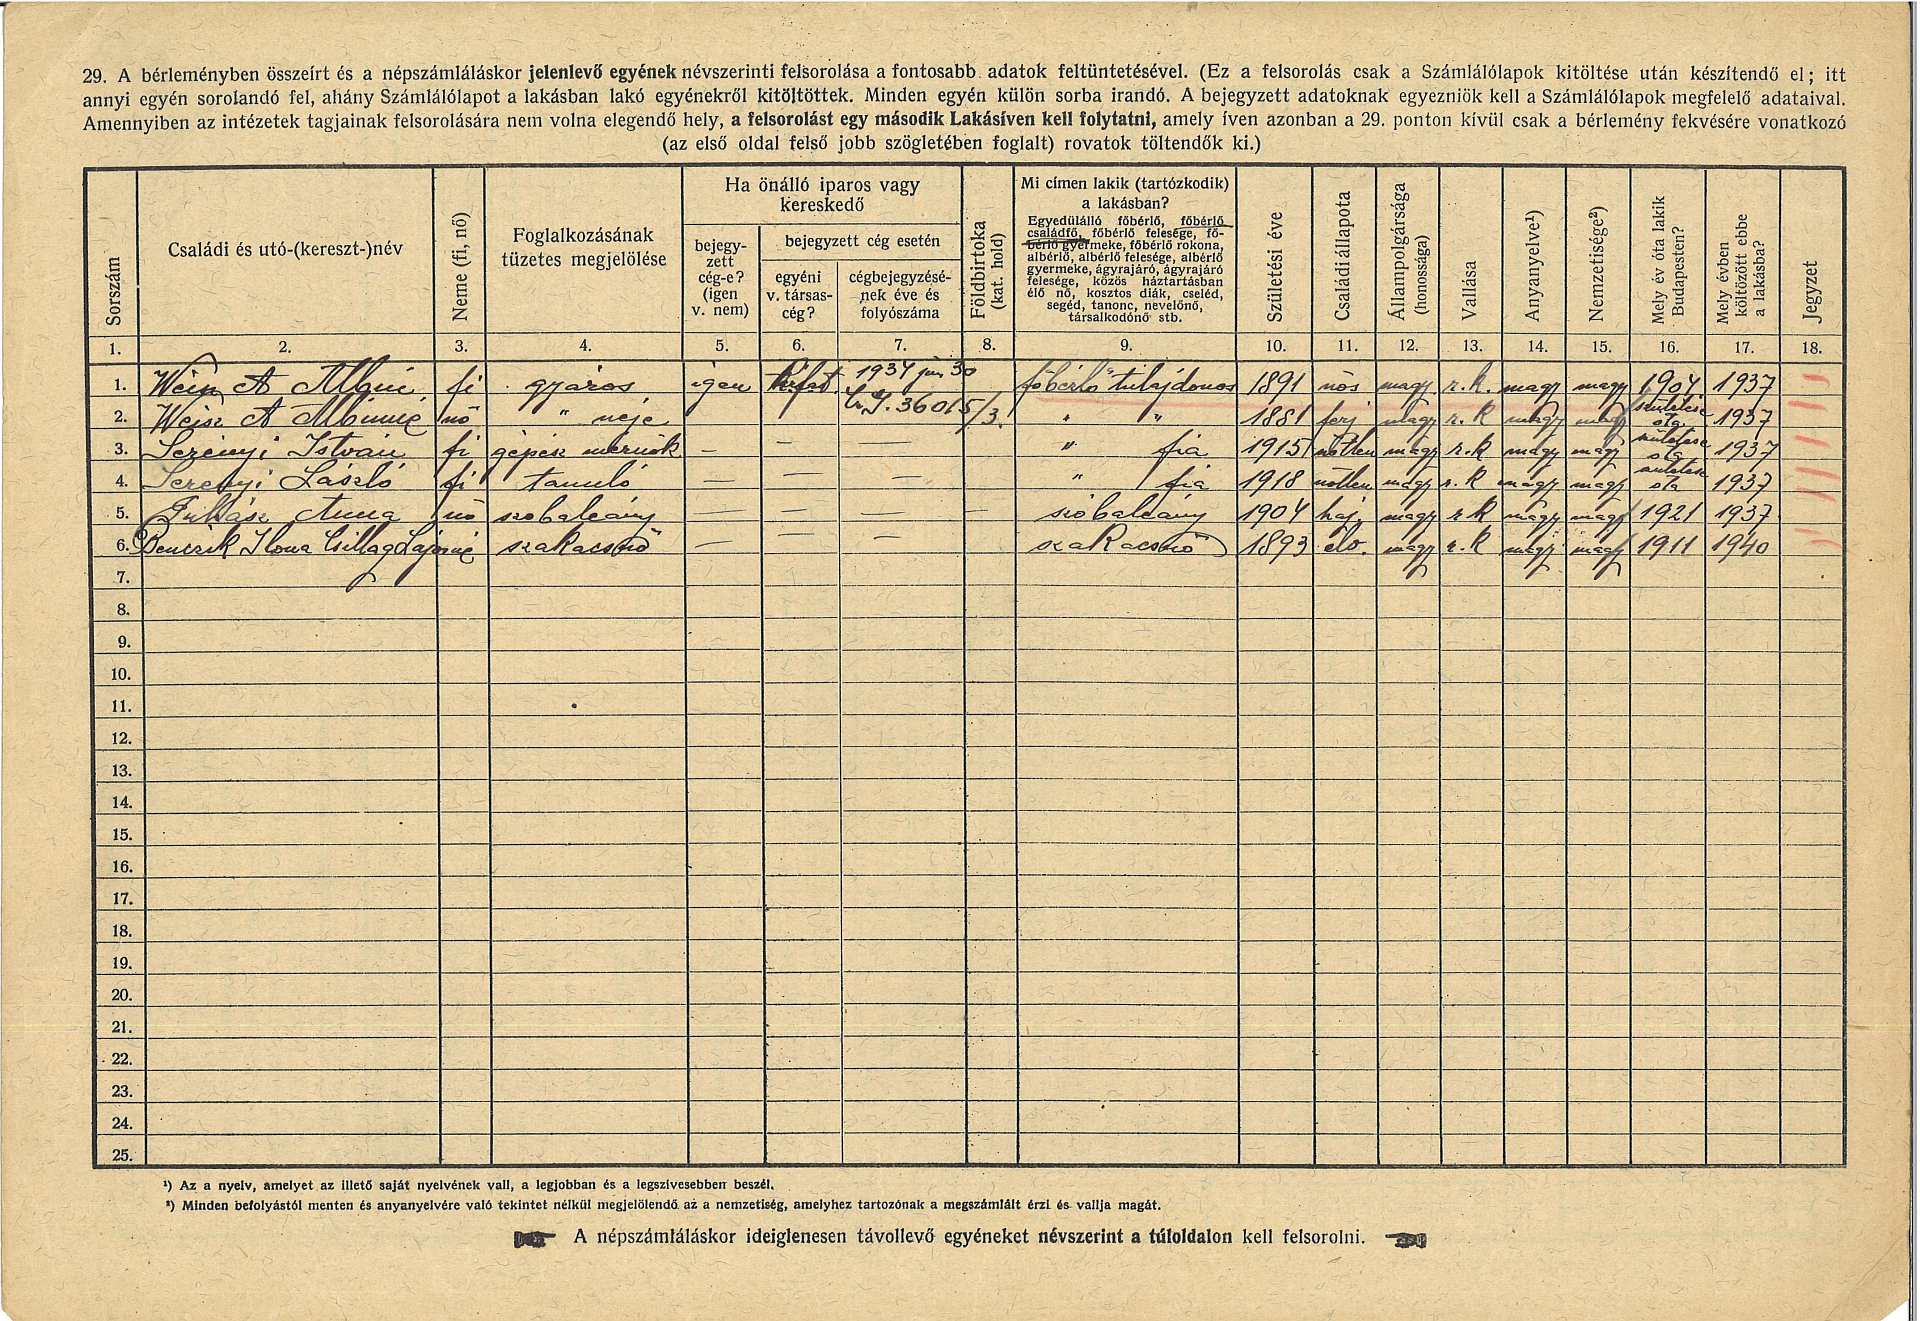 29. A bérleményben összeírt és a népszámláláskor jelenlevő egyének névszerinti felsorolása a fontosabb adatok feltüntetésével. (Ez a felsorolás csak a Számlálólapok kitöltése után készítendő el; itt
annyi egyén sorolandó fel, ahány Számlálólapot a lakásban lakó egyénekről kitöltöttek. Minden egyén külön sorba irandó. A bejegyzett adatoknak egyezniök kell a Számlálólapok megfelelő adataival.
Amennyiben az intézetek tagjainak felsorolására nem volna elegendő hely, a felsorolást egy második Lakásíven kell folytatni, amely íven azonban a 29. ponton kívül csak a bérlemény fekvésére vonatkozó
(az első oldal felső jobb szögletében foglalt) rovatok töltendők ki.)
Sorszám
Családi és utó-(kereszt-)név
Neme (fi, nő)
Foglalkozásának
tüzetes megjelölése
Ha önálló iparos vagy
kereskedő
bejegy-
zett
cég-e?
(igen
v. nem)
bejegyzett cég esetén
egyéni
v. társas-
cég?
cégbejegyzésé-
nek éve és
folyószáma
Földbirtoka
(kat. hold)
Mi címen lakik (tartózkodik)
a lakásban?
Egyedülálló főbérlő, főbérlő
családfő, főbérlő felesége, fő-
bérlő gyermeke, főbérlő rokona,
albérlő, albérlő felesége, albérlő
gyermeke, ágyrajáró, ágyrajáró
felesége, közös háztartásban
élő nő, kosztos diák, cseléd,
segéd, tanonc, nevelőnő,
társalkodónő stb.
Születési éve
Családi állapota
Állampolgársága
(honossága)
Vallása
Anyanyelve¹)
Nemzetisége²)
Mely év óta lakik
Budapesten?
Mely évben
költözött ebbe
a lakásba?
Jegyzet
1. 2. 3. 4. 5. 6. 7. 8. 9. 10. 11. 12. 13. 14. 15. 16. 17. 18.
1. Weisz A fi gyáros igen 1934 jún 30 főbérlő tulajdonos 1891 nős magy. r. k. magy magy 1904 1937
2. Weisz A nő " neje 36015/3. " " 1881 férj magy r. k magy magy születése óta 1937
3. Serényi István fi gépész mérnök — — — " fia 1915 nőtlen magy r. k magy magy születése óta 1937
4. Serényi László fi tanuló — — " fia 1918 nőtlen magy r. k magy magy születése óta 1937
5. Juhász Anna nő szobaleány — — — — szobaleány 1904 haj. magy r k magy magy 1921 1937
6. Benczik Ilona Csillag Lajosné szakacsnő — — — szakacsnő 1893 elv. magy r. k magy magy 1911 1940
7.
8.
9.
10.
11.
12.
13.
14.
15.
16.
17.
18.
19.
20.
21.
22.
23.
24.
25.
¹) Az a nyelv, amelyet az illető saját nyelvének vall, a legjobban és a legszívesebben beszél.
²) Minden befolyástól menten és anyanyelvére való tekintet nélkül megjelölendő az a nemzetiség, amelyhez tartozónak a megszámlált érzi és vallja magát.
A népszámláláskor ideiglenesen távollevő egyéneket névszerint a túloldalon kell felsorolni.